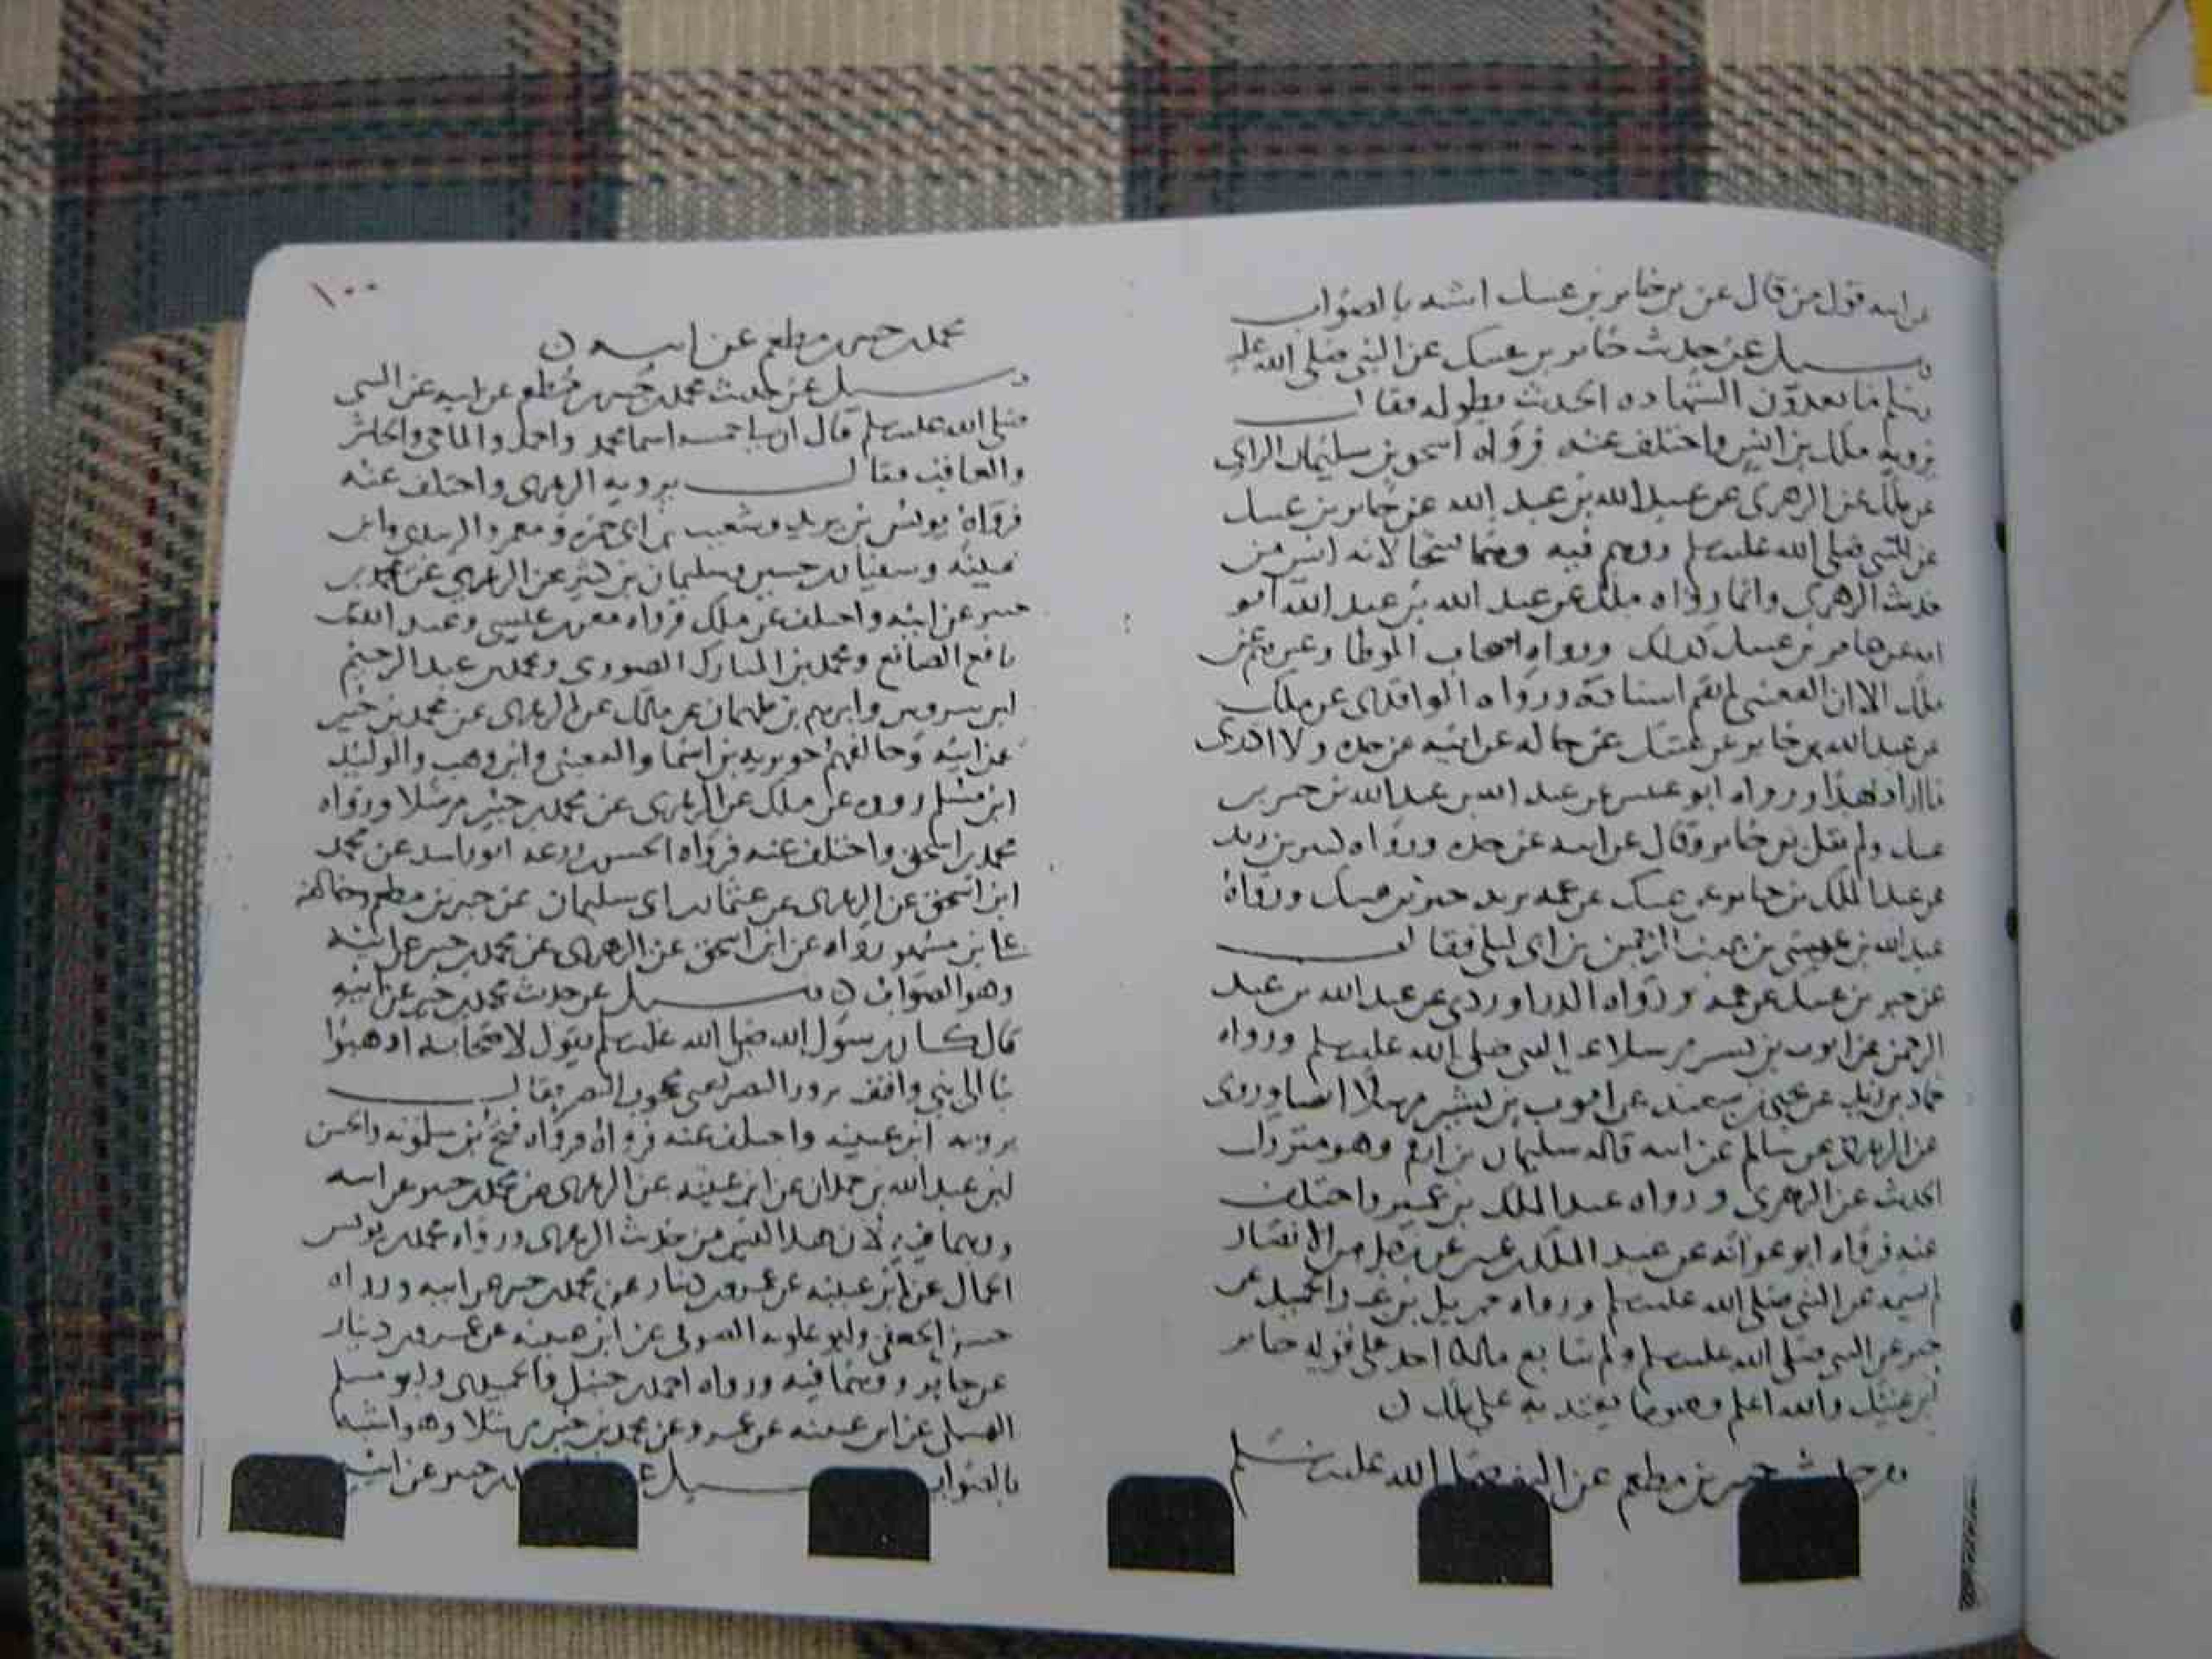 عن ابيه قول من قال عن بن جابر بن عتيك اشبه بالصواب
وسيل عن حديث جابر بن عتيك عن النبي صلى الله عليه
وسلم ما تعدون الشهاده الحديث بطوله فقال
يرويه ملك بن انس واختلف عنه فرواه اسحق بن سليمان الرازي
عن ملك عن الزهري عن عبد الله بن عبد الله عن جابر بن عتيك
عن النبي صلى الله عليه وسلم ووهم فيه وهما قبيحا لانه ليس من
حديث الزهري وانما رواه ملك عن عبد الله بن عبد الله ابو
امه عن جابر بن عتيك كذلك ورواه اصحاب الموطا وغيرهم عن
ملك الا ان القعنبي لم يقم اسناده ورواه الواقدي عن ملك
عن عبد الله بن جابر بن عتيك عن خاله عن ابيه عن جده ولا ادري
ما اراد بهذا ورواه ابو عميس عن عبد الله بن عبد الله بن جبر بن
عتيك ولم يقل بن جابر وقال عن ابيه عن جده ورواه
عن عبد الملك بن جابر بن عتيك عن عمه يريد جبر بن عتيك ورواه
عبد الله بن عيسى بن عبد الرحمن بن ابي ليلى فقال
عن جبر بن عتيك عن عمه ورواه الدراوردي عن عبد الله بن عبد
الرحمن عن ايوب بن بشير مرسلا عن النبي صلى الله عليه وسلم ورواه
حماد بن زيد عن يحيى بن سعيد عن ايوب بن بشير مرسلا ايضا وروى
عن الزهري عن سالم عن ابيه قاله سليمان بن ارقم وهو متروك
الحديث عن الزهري ورواه عبد الملك بن عمير واختلف
عنه فرواه ابو عوانه عن عبد الملك بن عمير عن رجل من الانصار
لم يسمه عن النبي صلى الله عليه وسلم ورواه
جبر عن النبي صلى الله عليه وسلم ولم يتابع مالك احد على قوله جابر
ابن عتيك والله اعلم وهو مما يعتد به على ملك ن
ومن حديث جبير بن مطعم عن النبي صلى الله عليه وسلم
١٠٠
محمد بن جبير بن مطعم عن ابيه ن
وسيل عن حديث محمد بن جبير بن مطعم عن ابيه عن النبي
صلى الله عليه وسلم قال ان لي خمسه اسما محمد واحمد والماحي والحاشر
والعاقب فقال يرويه الزهري واختلف عنه
فرواه يونس بن يزيد وشعيب بن ابي حمزه ومعمر والزبيدي وابن
عيينه وسفيان بن حسين وسليمان بن كثير عن الزهري عن محمد بن
جبير عن ابيه واختلف عن ملك فرواه معن بن عيسى وعبد الله بن
نافع الصائغ ومحمد بن المبارك الصوري ومحمد بن عبد الرحيم
ابن شروس وابرهيم بن طهمان عن مالك عن الزهري عن محمد بن جبير
عن ابيه وخالفهم جويريه بن اسما والقعنبي وابن وهب والوليد
ابن مسلم رووه عن ملك عن الزهري عن محمد بن جبير مرسلا ورواه
محمد بن اسحق واختلف عنه فرواه الحسن بن زرعه ابو راشد عن محمد
ابن اسحق عن الزهري عن عثمان بن ابي سليمان عن جبير بن مطعم وخالفه
علي بن مسهر رواه عن ابن اسحق عن الزهري عن محمد بن جبير عن ابيه
وهو الصواب ن وسيل عن حديث محمد بن جبير عن ابيه
قال كان رسول الله صلى الله عليه وسلم يقول لاصحابه اذهبوا
بنا الى بني واقف نزور البصير يعني محجوب البصر فقال
يرويه ابن عيينه واختلف عنه فرواه فتح بن سلمويه والحسن
ابن عبد الله بن حمدان عن ابن عيينه عن الزهري عن محمد بن جبير عن ابيه
ووهما فيه لان هذا ليس من حديث الزهري ورواه محمد بن يونس
الجمال عن ابن عيينه عن عمرو بن دينار عن محمد بن جبير عن ابيه ورواه
حسين الجعفي وابو علويه الصوفي عن ابن عيينه عن عمرو بن دينار
عن جابر ووهما فيه ورواه احمد بن حنبل والحميدي وابو مسلم
عن ابن عيينه عن عمرو عن محمد بن جبير مرسلا وهو اشبه
بالصواب وسيل جبير عن ابيه